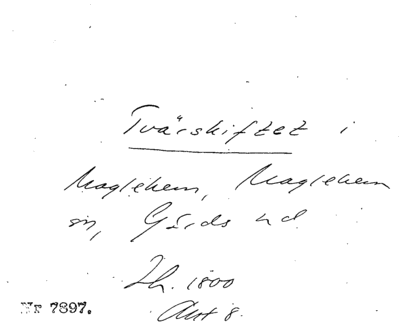 Tvärskiftet i
Maglehem, Maglehem
sn, Gärds hd
Lh. 1800
Akt 8.
Nr 7397.